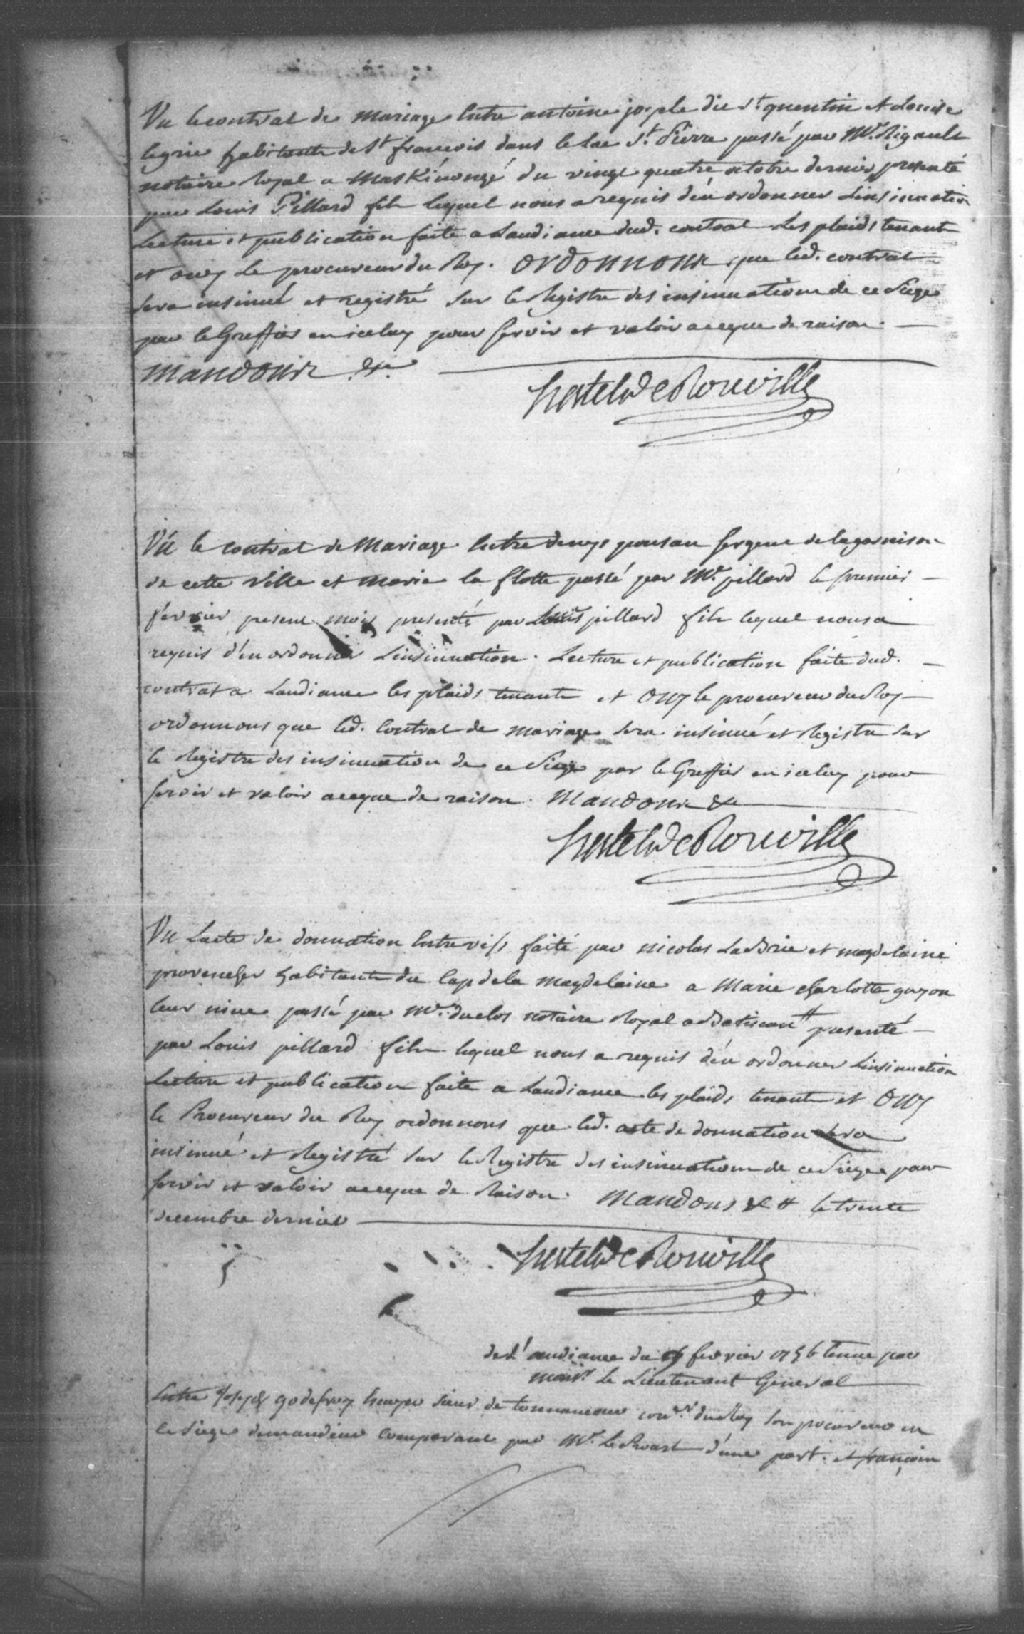 Vu le contrat de mariage Entre antoine joseph dit st quentin et Louise
habitants de St francois dans le lac St. Pierre passé par Mr. Rigault
notaire Royal a Maskinongé du vingt quatre octobre dernier presenté
par Louis Pillard fils lequel nous a requis d'en ordonner Linsinuation
Lecture et publication faite a Laudiance dud. contrat Les plaids tenant
et ouy le procureur du Roy. ordonnons que led. contrat
sera insinué et registré sur le Registre des insinuations de ce Siege
par le Greffier en iceluy pour servir et valoir ace que de raison.
mandons &c.
hertel de Rouville
Vû le contrat de Mariage Entre denys sergent de la garnison
de cette Ville et marie la flotte passé par Mr. pillard le premier
fevrier present mois presenté par Louis pillard fils lequel nous a
requis d'en ordonner Linsinuation. Lecture et publication faite dud.
contrat a Laudiance les plaids tenants et Ouy le procureur du Roy
ordonnons que led. Contrat de mariage sera insinué et Registré sur
le Registre des insinuation de ce Siege par le Greffier en iceluy pour
servir et valoir ace que de raison. Mandons &c
hertel de Rouville
Vu Lacte de donnation Entre vifs faite par nicolas et magdelaine
provencher habitants du Cap de la magdelaine a Marie charlotte guyon
leur niece passé par Mr. duclos notaire Royal a Batiscan # presenté
par Louis pillard fils lequel nous a requis d'en ordonner Linsinuation
Lecture et publication faite a Laudiance les plaids tenant et Ouy
le Procureur du Roy ordonnons que led. acte de donnation sera
insinué et Registré sur le Registre des insinuations de ce Siege pour
servir et valoir ace que de Raison. Mandons &c # le trente
decembre dernier
hertel de Rouville
de L'audiance du fevrier 1756 tenue par
monsr. le Lieutenant General
Entre Joseph godefroy Ecuyer sieur de tonnancour conser. du Roy son procureur en
ce Siege demandeur comparant par Mr. le Proust d'une part. et francois